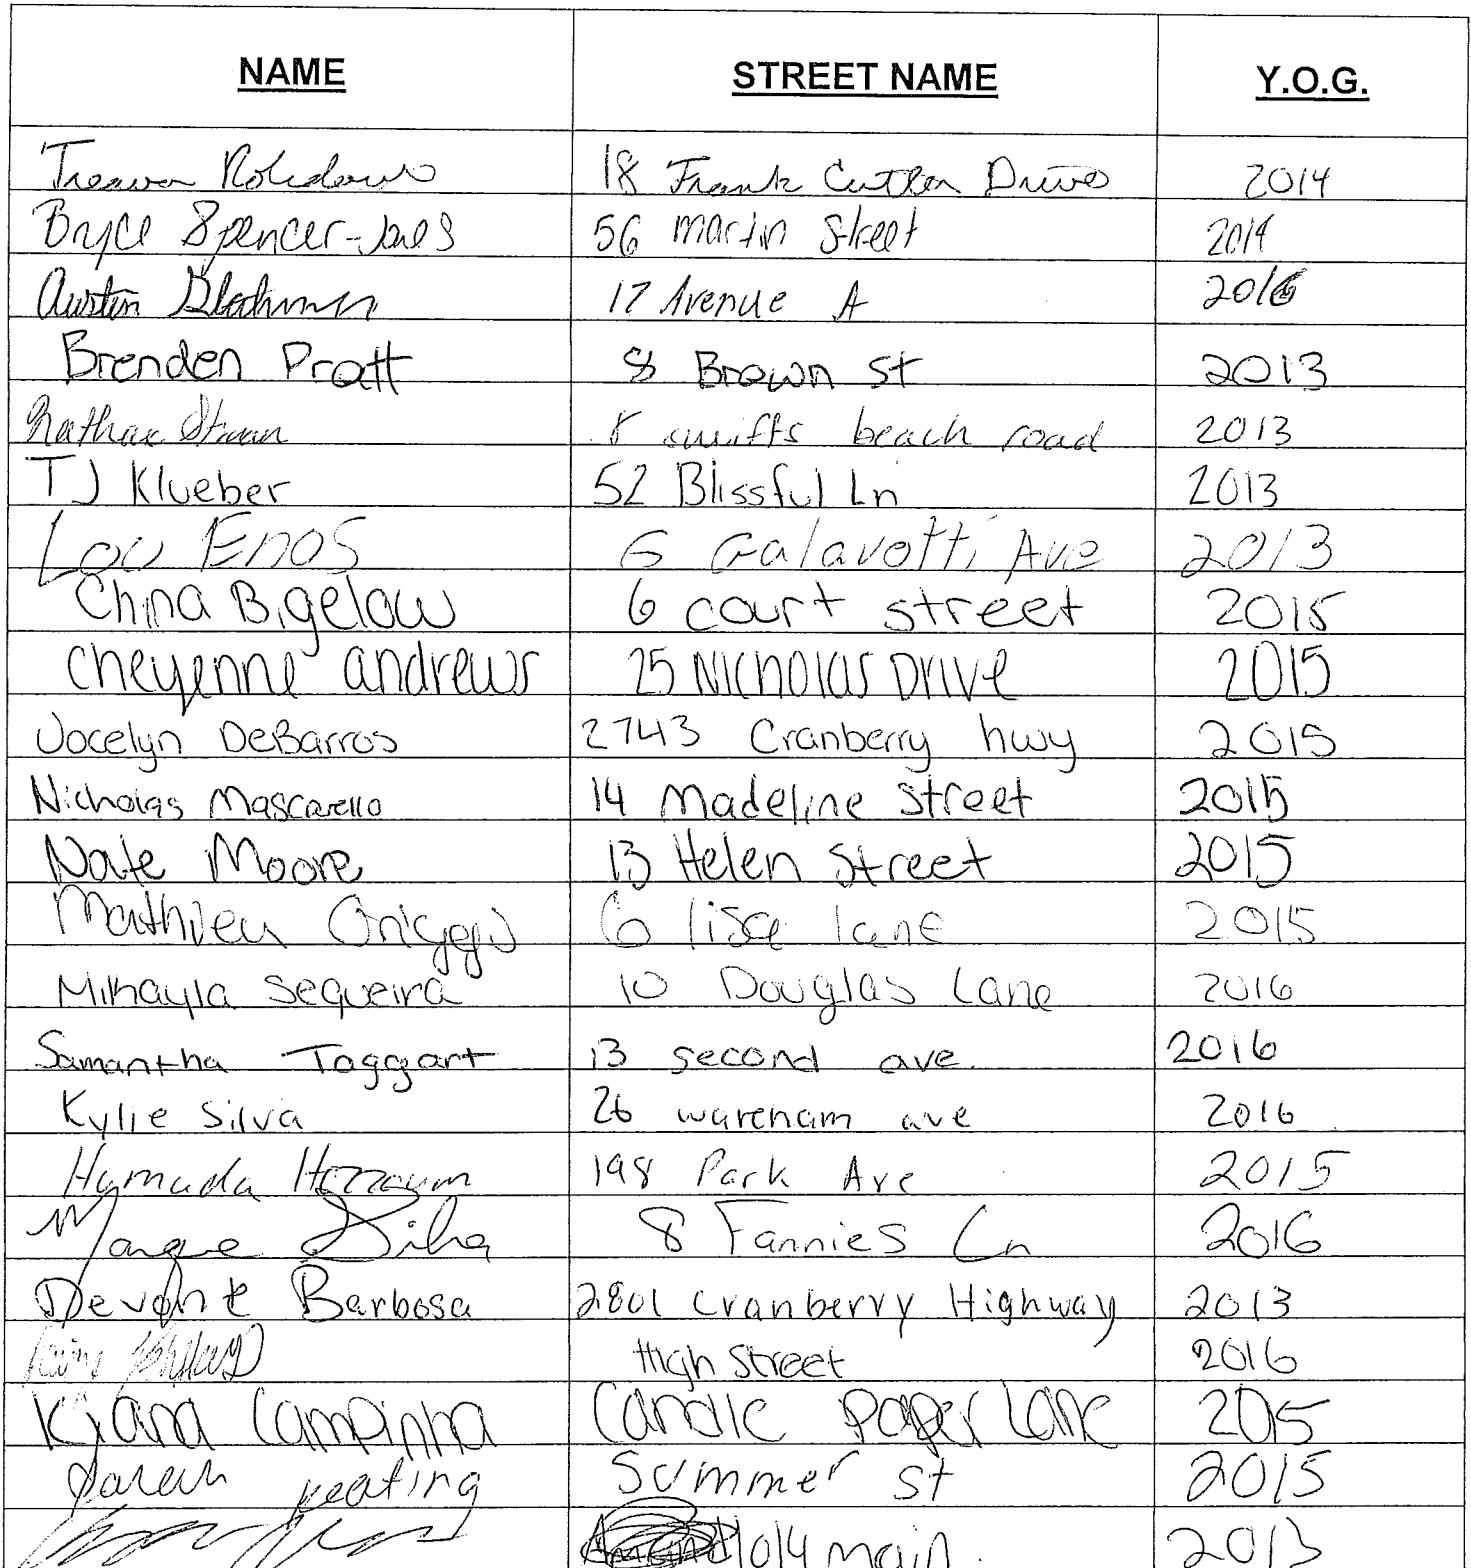 NAME STREET NAME Y.O.G.
18 Frank Cutler Drive 2014
Bryce Spencer-Jones 56 Martin Street 2014
Austin 17 Avenue A 2016
Brenden Pratt 8 Brown St 2013
Nathan 8 swifts beach road 2013
TJ Klueber 52 Blissful Ln 2013
Lou Enos 6 Galavotti Ave 2013
China Bigelow 6 court street 2015
Cheyenne andrews 25 Nicholas Drive 2015
Jocelyn DeBarros 2743 Cranberry hwy 2015
Nicholas Mascarello 14 Madeline Street 2015
Nate Moore 13 Helen Street 2015
Mathieu 6 lisa lane 2015
Mikayla Sequeira 10 Douglas Lane 2016
Samantha Taggart 13 second ave. 2016
Kylie Silva 26 wareham ave 2016
Hamuda 198 Park Ave 2015
Silva 8 Fannies Ln 2016
Devonte Barbosa 2801 Cranberry Highway 2013
High Street 2016
Kiana Campinha Candle Paper Lane 2015
Sarah Keating Summer St 2015
main. 2013